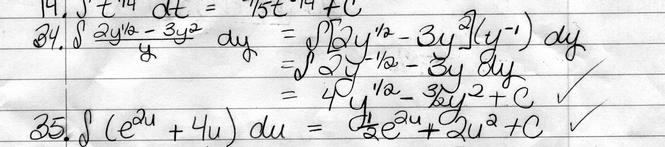 14. ∫ t^-1/4 dt = -1/5 t^-1/4 + C
34. ∫ (2y^1/2 - 3y^2)/y dy = ∫[2y^1/2 - 3y^2](y^-1) dy
= ∫ 2y^-1/2 - 3y dy
= 4y^1/2 - 3/2y^2 + C ✓
35. ∫ (e^2u + 4u) du = 1/2e^2u + 2u^2 + C ✓